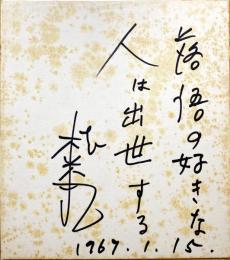 落悟の好きな
人は出世する
1967.1.15.